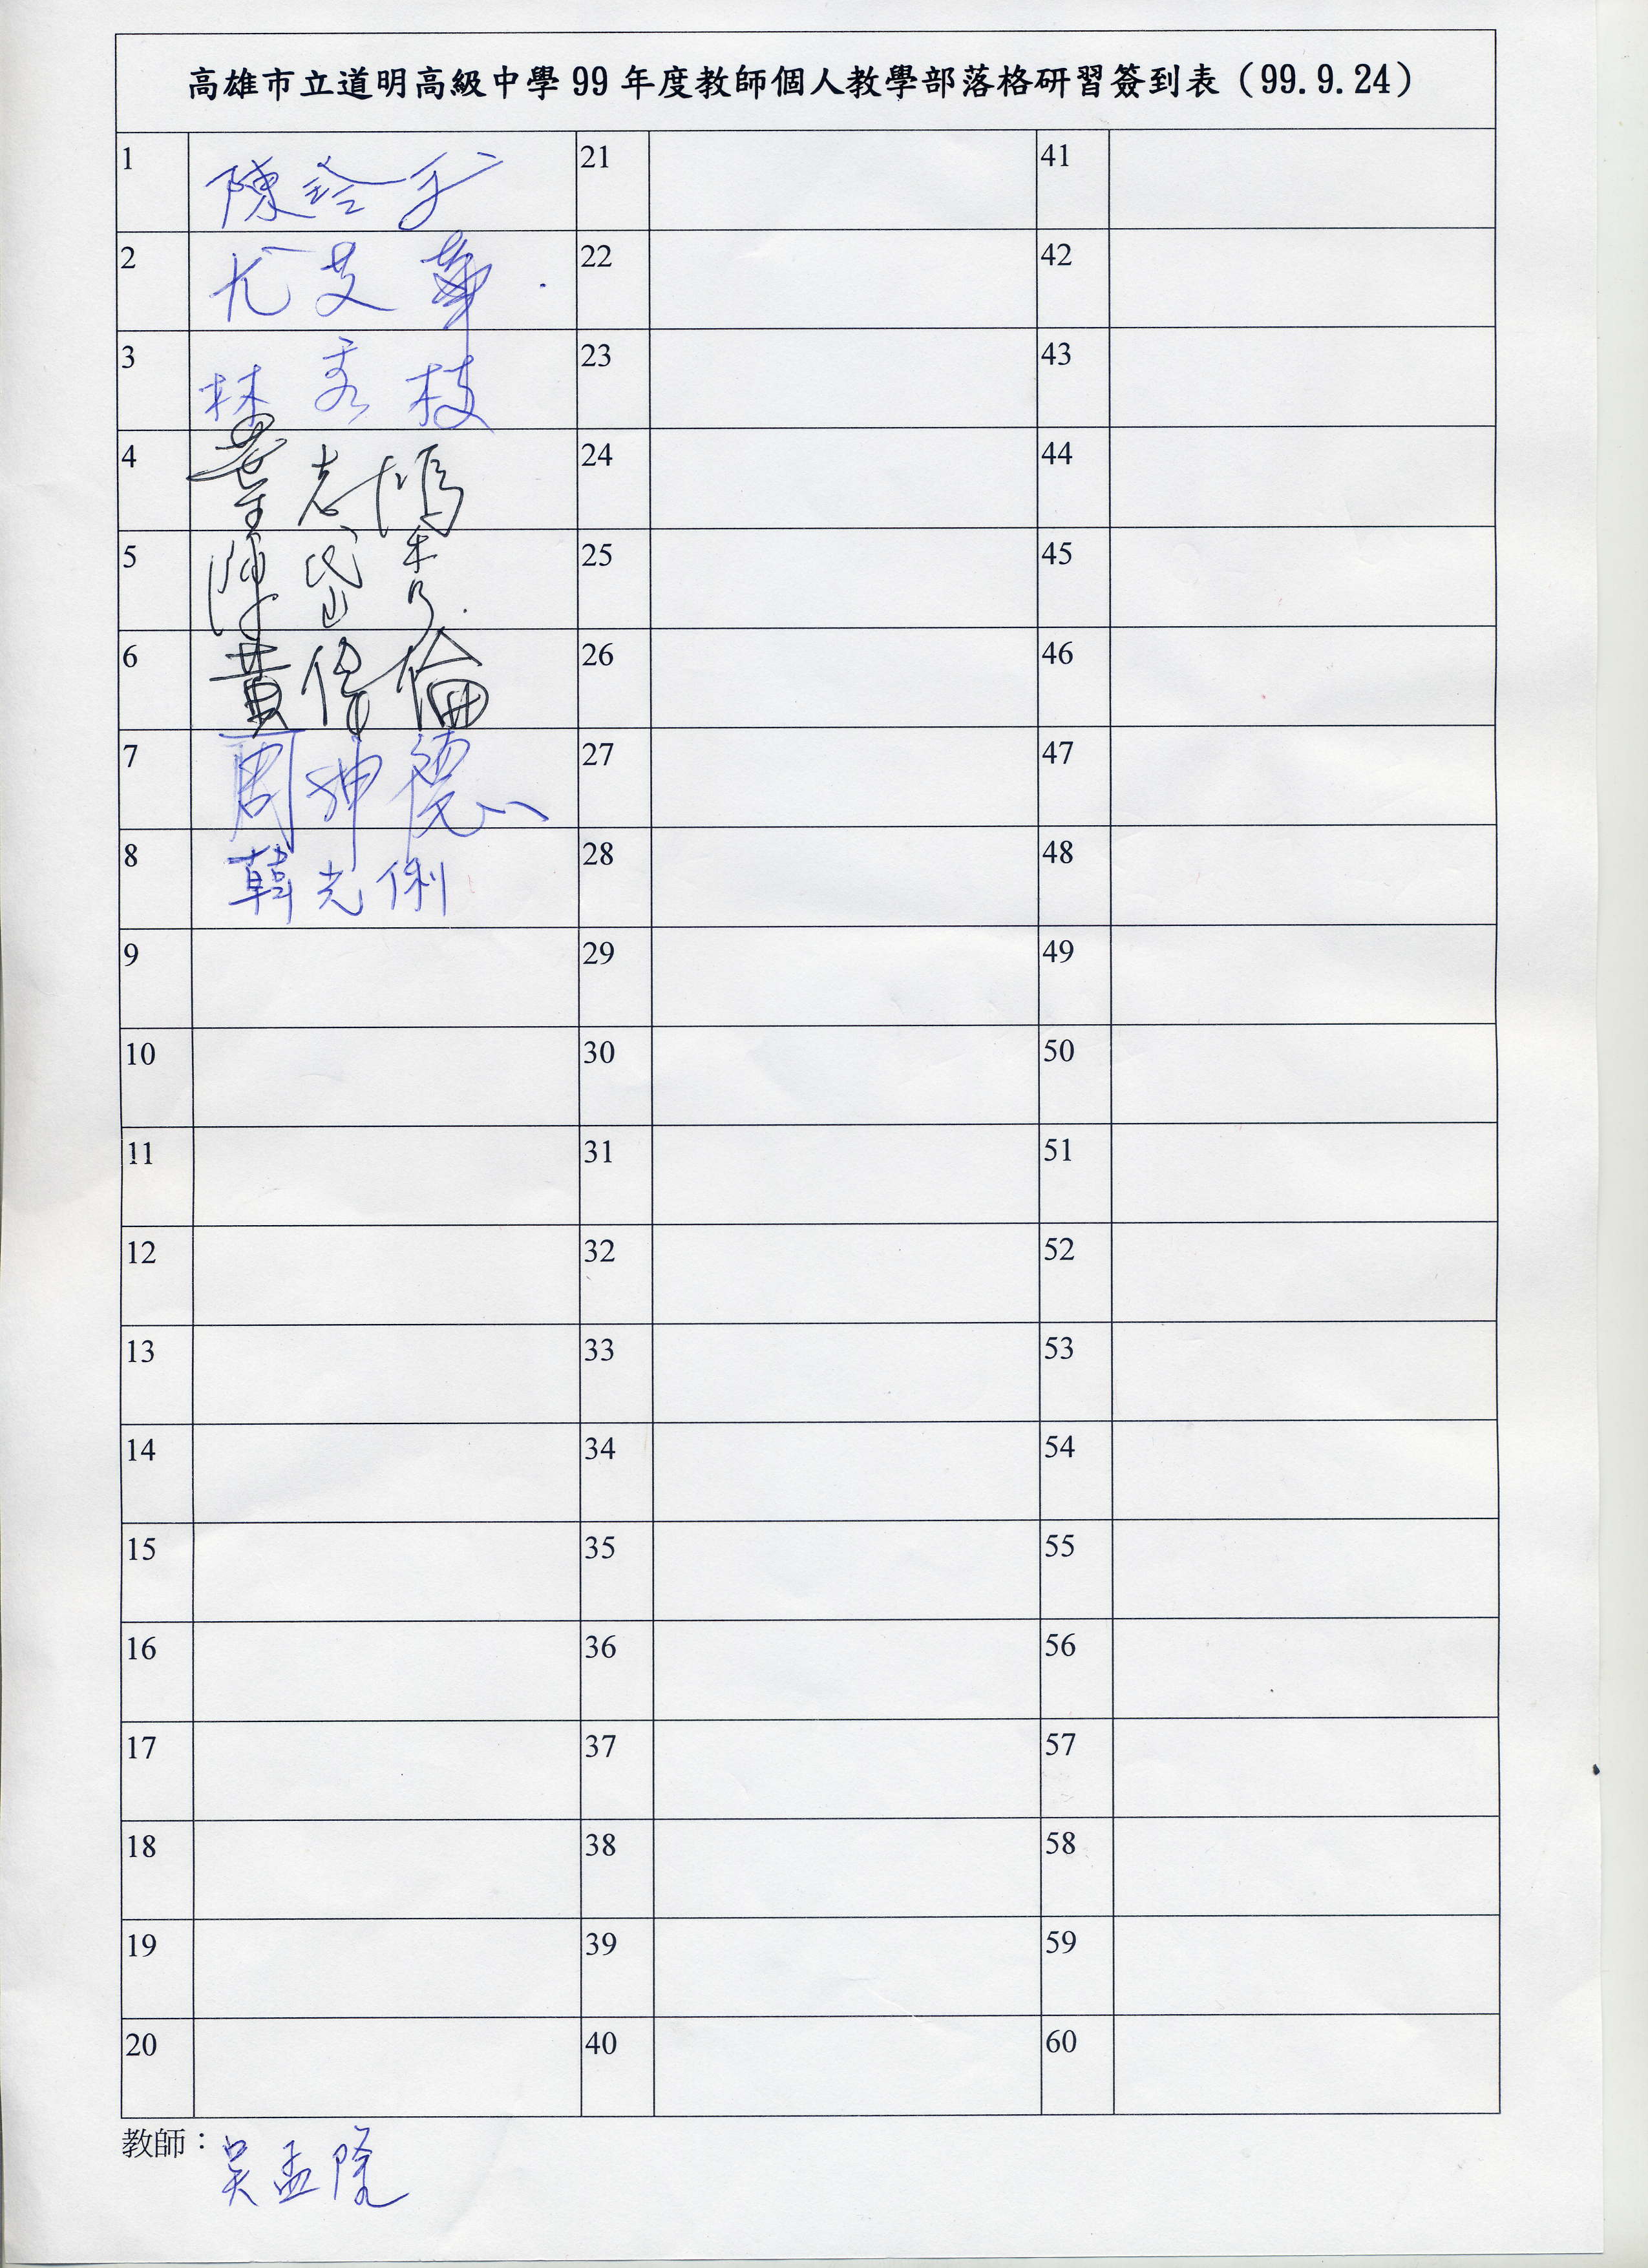 高雄市立道明高級中學 99 年度教師個人教學部落格研習簽到表（99.9.24）
1 陳玲 21 41
2 尤艾華 22 42
3 林秀枝 23 43
4 葉志鴻 24 44
5 陳岱 25 45
6 黃偉倫 26 46
7 周坤德 27 47
8 韓光俐 28 48
9 29 49
10 30 50
11 31 51
12 32 52
13 33 53
14 34 54
15 35 55
16 36 56
17 37 57
18 38 58
19 39 59
20 40 60
教師：吳孟隆